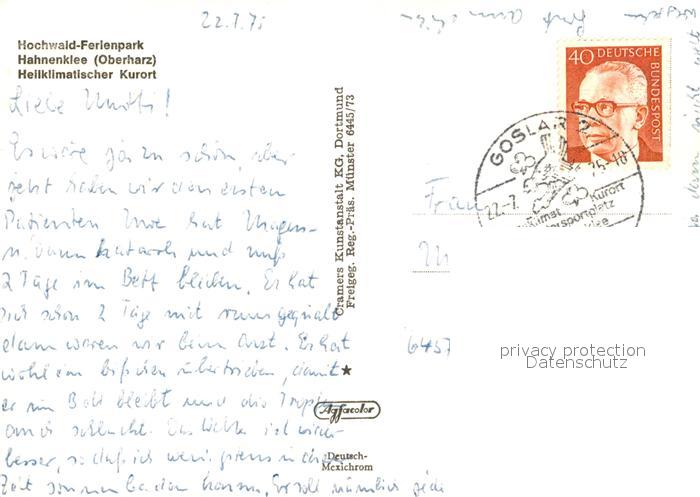 22.7.75
Hochwald-Ferienpark
Hahnenklee (Oberharz)
Heilklimatischer Kurort
Liebe Mutti!
Es wäre ja zu schön, aber
jetzt haben wir den ersten
Patienten Uwe hat Magen-
u. Darmkatarrh und muß
2 Tage im Bett bleiben. Er hat
sich schon 2 Tage mit rumgequält
dann waren wir beim Arzt. Er hat
wohl ein bißchen übertrieben, damit
er im Bett bleibt und die Tropfen
auch schluckt. Das Wetter ist wieder
besser, so daß ich wenigstens in dieser
Zeit sonnenbaden kann. Er soll nämlich
Cramers Kunstanstalt KG, Dortmund
Freigeg. Reg.-Präs. Münster 6445/73
★
Agfacolor
Deutsch-
Mexichrom
40 DEUTSCHE
BUNDESPOST
GOSLAR 2
22.-7. 75-18
Kurort
Frau
6457
privacy protection
Datenschutz